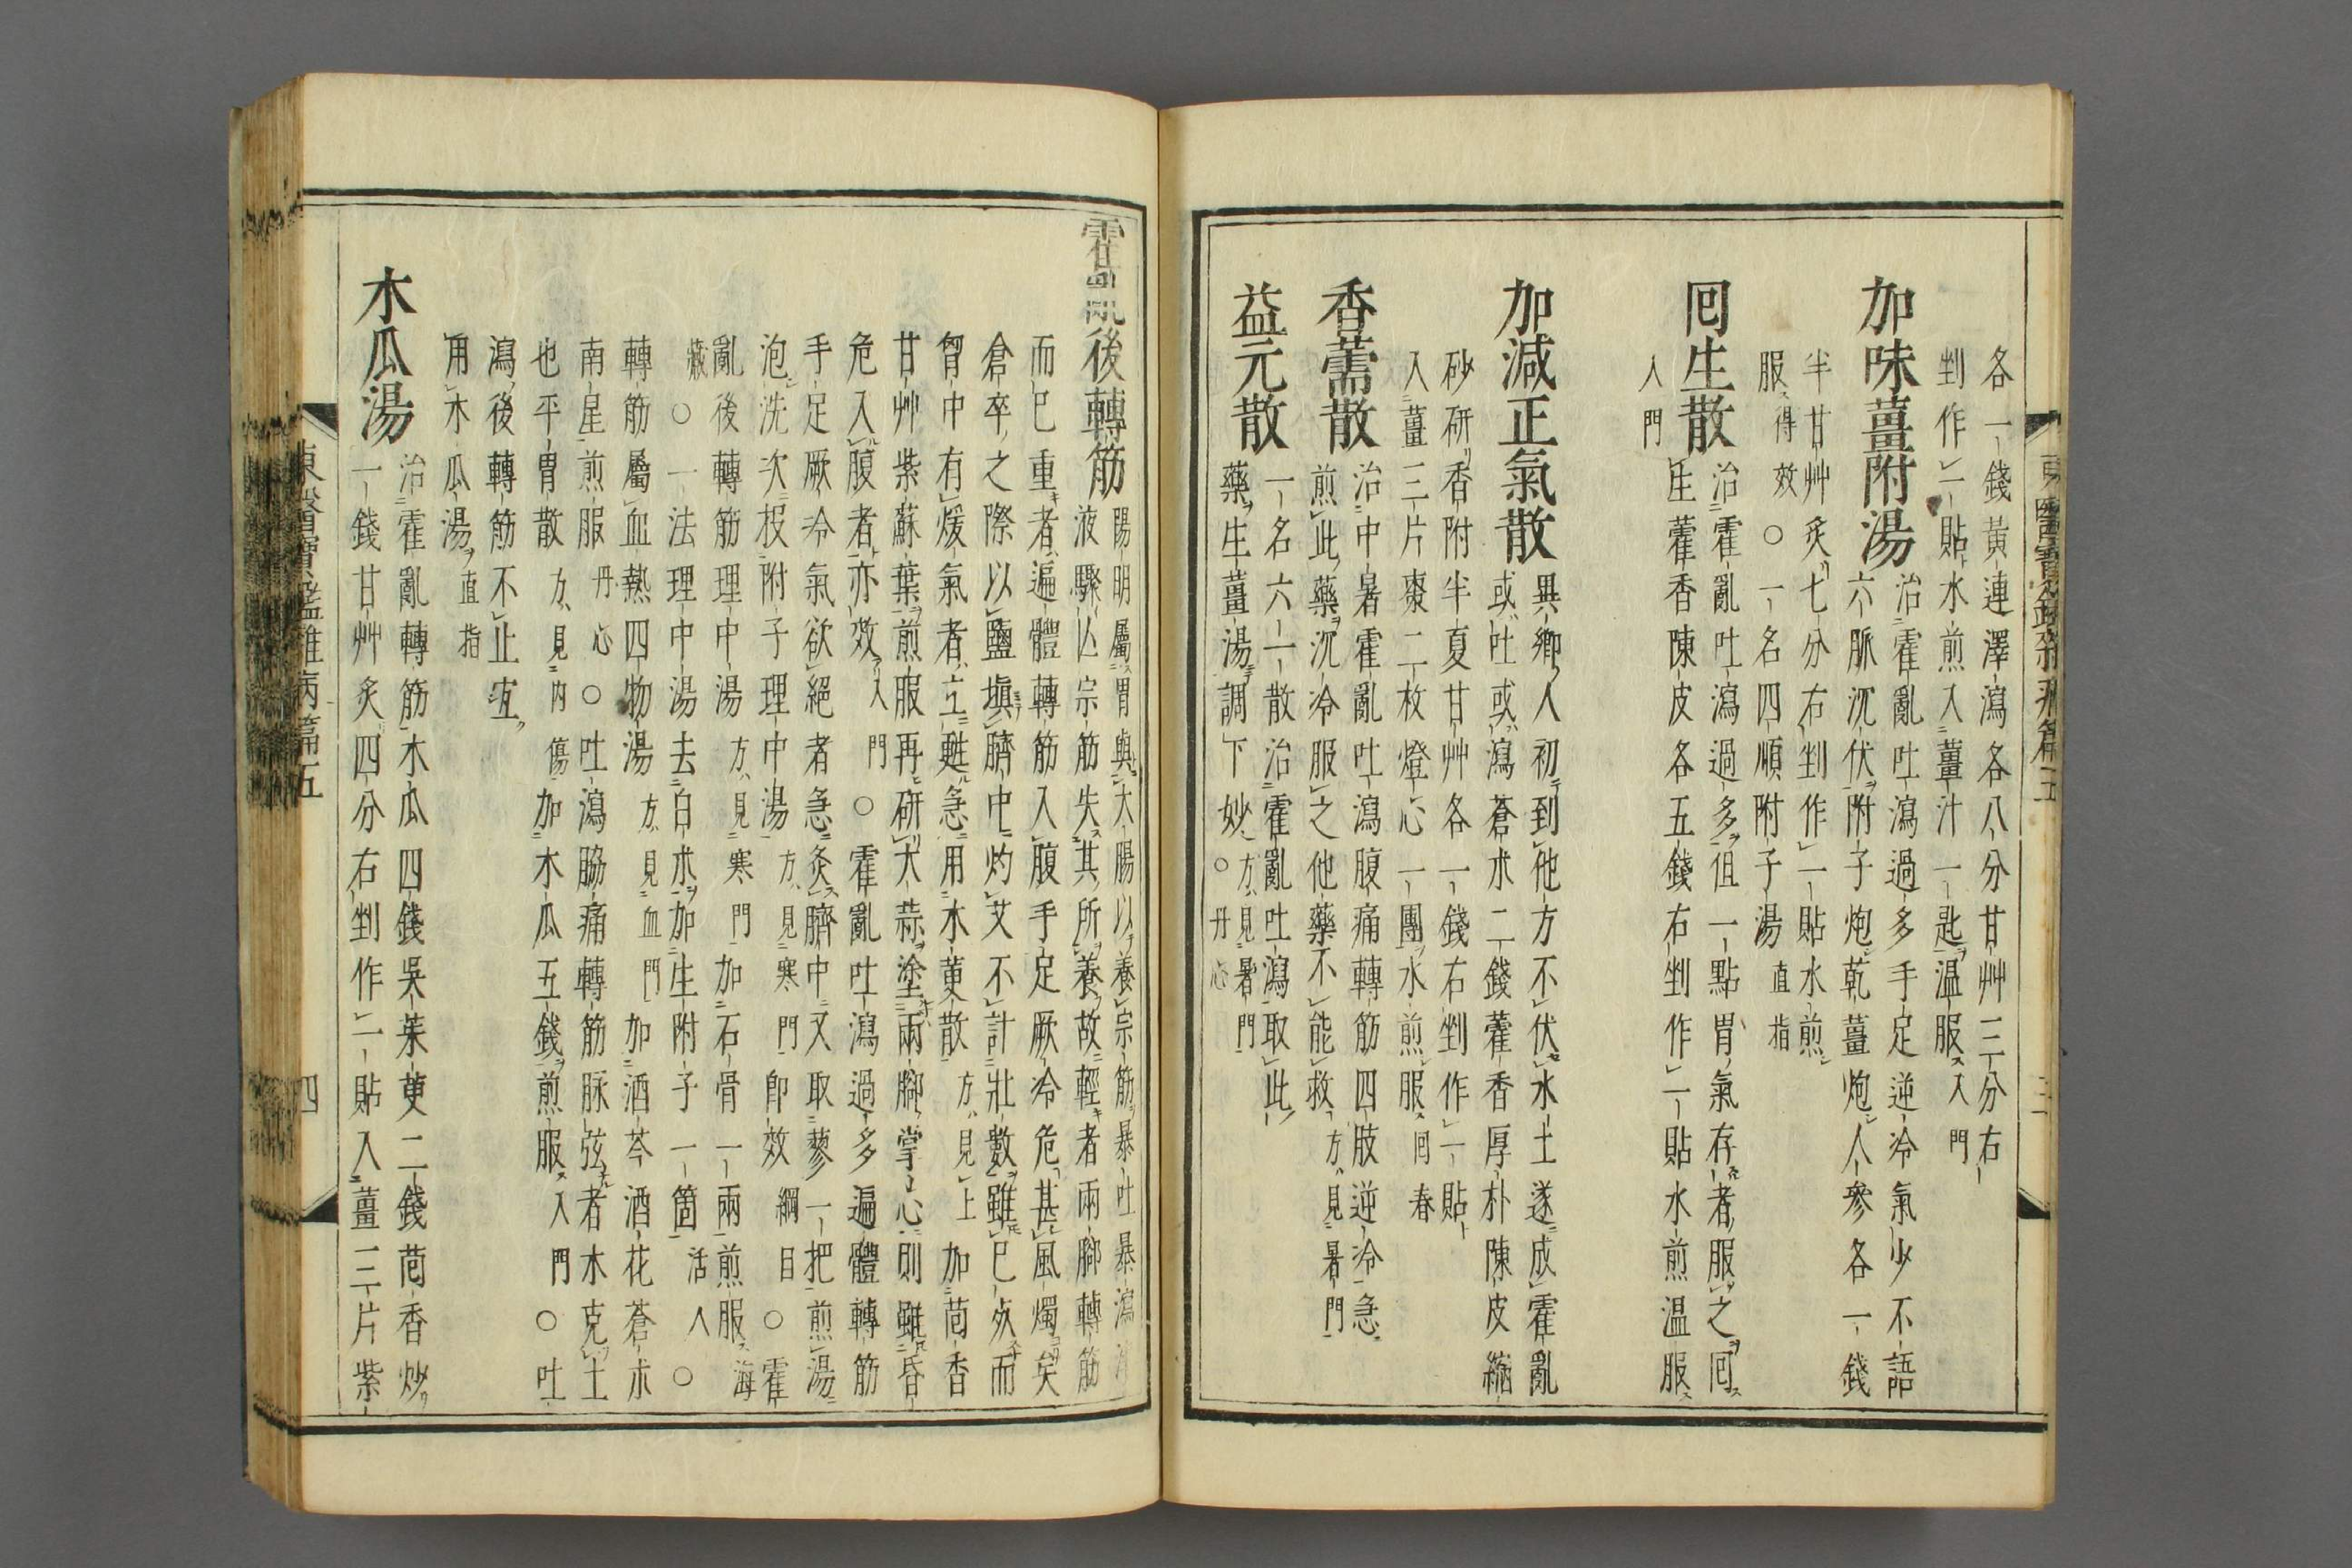 各一錢黃連澤瀉各八分甘艸三分右
剉作一貼水煎入薑汁一匙温服入門
加味薑附湯
治霍亂吐瀉過多手足逆冷氣少不語
六脈沉伏附子炮乾薑炮人參各一錢
半甘艸炙七分右剉作一貼水煎
服得效○一名四順附子湯直指
囘生散
治霍亂吐瀉過多但一點胃氣存者服之囘
生藿香陳皮各五錢右剉作一貼水煎温服
入門
加減正氣散
異鄉人初到他方不伏水土遂成霍亂
或吐或瀉蒼朮二錢藿香厚朴陳皮縮
砂研香附半夏甘艸各一錢右剉作一貼
入薑三片棗二枚燈心一團水煎服囘春
香薷散
治中暑霍亂吐瀉腹痛轉筋四肢逆冷急
煎此藥沉冷服之他藥不能救方見暑門
益元散
一名六一散治霍亂吐瀉取此
藥生薑湯調下妙方見暑門○丹心
霍亂後轉筋
陽明屬胃與大腸以養宗筋暴吐暴瀉津
液驟亾宗筋失其所養故輕者兩脚轉筋
而已重者遍體轉筋入腹手足厥冷危甚風燭矣
倉卒之際以鹽塡臍中灼艾不計壯數雖已死而
胷中有煖氣者立甦急用水萸散方見上加茴香
甘艸紫蘇葉煎服再硏大蒜塗兩脚掌心則雖昏
危入腹者亦效入門○霍亂吐瀉過多遍體轉筋
手足厥冷氣欲絕者急灸臍中又取蓼一把煎湯
泡洗次投附子理中湯方見寒門卽效綱目○霍
亂後轉筋理中湯方見寒門加石骨一兩煎服海
藏○一法理中湯去白朮加生附子一箇活人○
轉筋屬血熱四物湯方見血門加酒芩酒花蒼朮
南星煎服丹心○吐瀉脇痛轉筋脉弦者木克土
也平胃散方見內傷加木瓜五錢煎服入門○吐
瀉後轉筋不止宜
用木瓜湯直指
木瓜湯
治霍亂轉筋木瓜四錢吳茱萸二錢茴香炒
一錢甘艸炙四分右剉作一貼入薑三片紫
東醫寶鑑雜病篇五
四